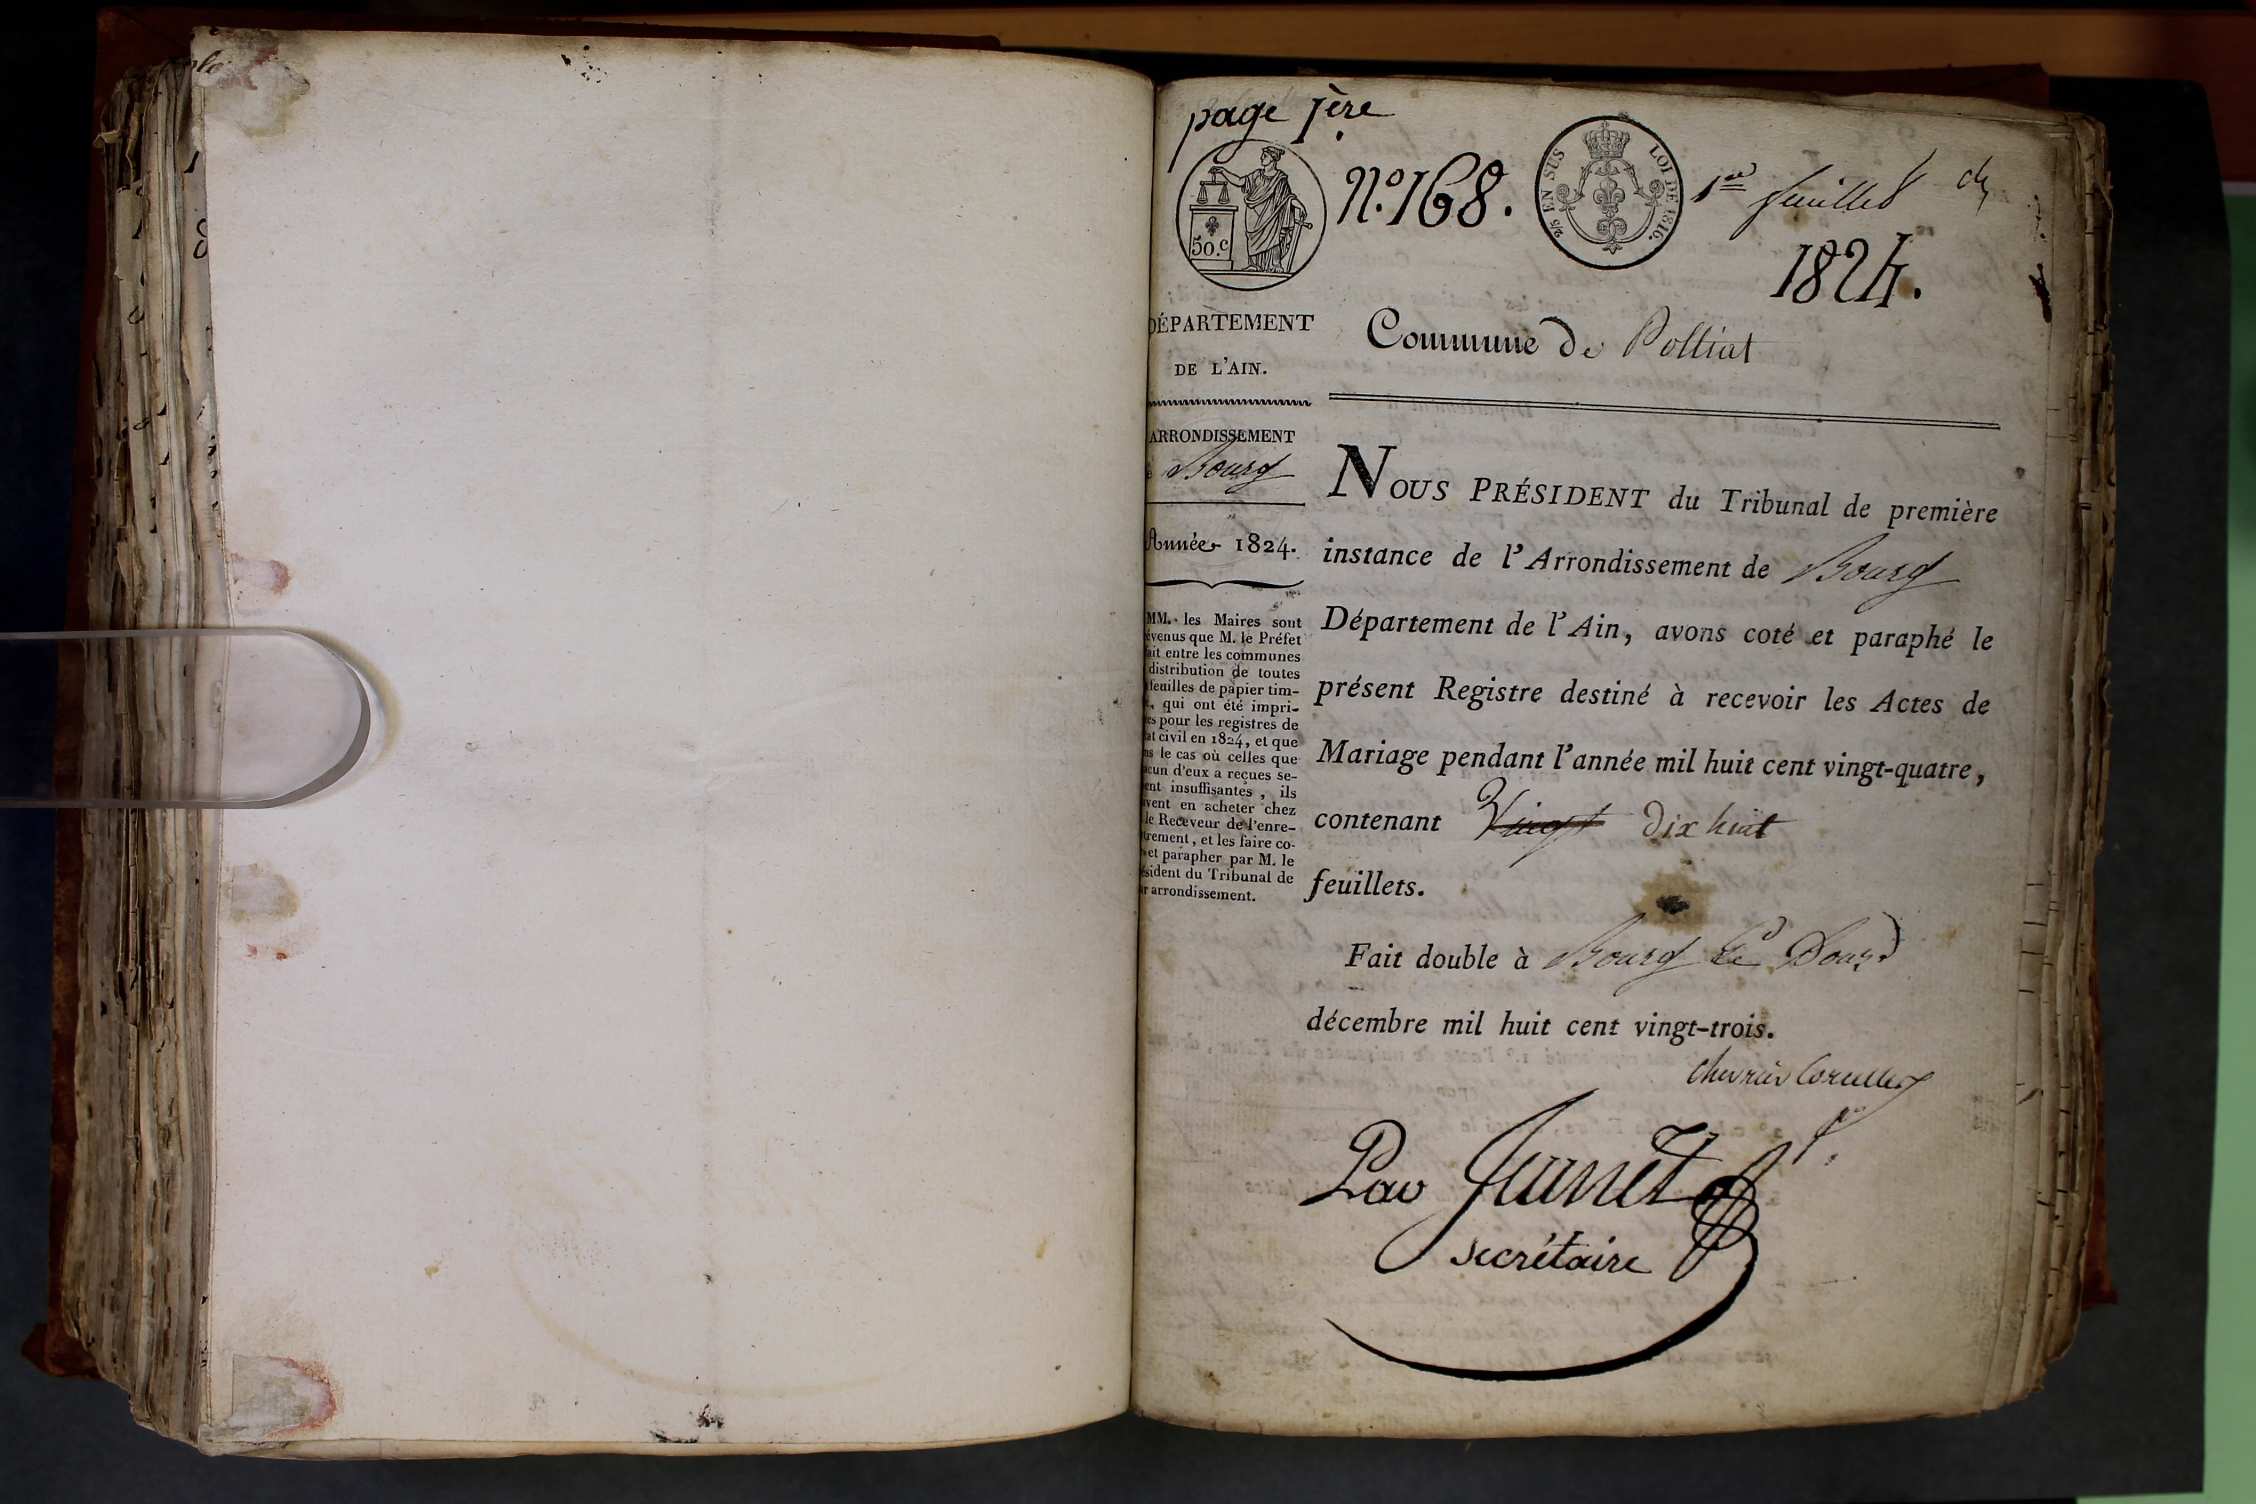 page 1ère
50.c
N.º 168.
2/5 EN SUS
LOI DE 1816.
1er feuillet
1824.
DÉPARTEMENT
DE L'AIN.
Commune de Polliat
ARRONDISSEMENT
Bourg
Année 1824.
MM. les Maires sont
évenus que M. le Préfet
ait entre les communes
distribution de toutes
feuilles de papier tim-
qui ont été impri-
es pour les registres de
at civil en 1824, et que
ns le cas où celles que
acun d'eux a reçues se-
ent insuffisantes, ils
uvent en acheter chez
le Receveur de l'enre-
trement, et les faire co-
et parapher par M. le
ésident du Tribunal de
r arrondissement.
NOUS PRÉSIDENT du Tribunal de première
instance de l'Arrondissement de Bourg
Département de l'Ain, avons coté et paraphé le
présent Registre destiné à recevoir les Actes de
Mariage pendant l'année mil huit cent vingt-quatre,
contenant Vingt dix huit
feuillets.
Fait double à Bourg le Douze
décembre mil huit cent vingt-trois.
secrétaire